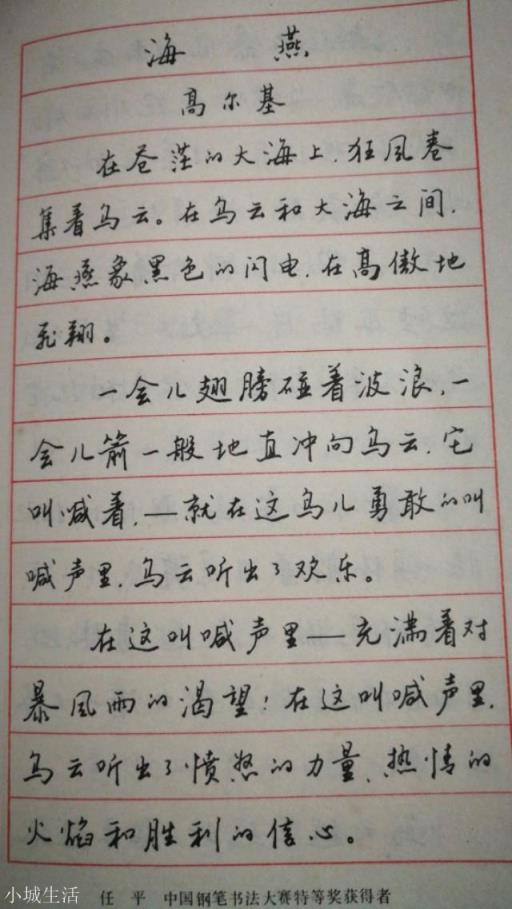 海 燕
高尔基
在苍茫的大海上,狂风卷
集着乌云。在乌云和大海之间,
海燕象黑色的闪电,在高傲地
飞翔。
一会儿翅膀碰着波浪,一
会儿箭一般地直冲向乌云,它
叫喊着,—就在这鸟儿勇敢的叫
喊声里,乌云听出了欢乐。
在这叫喊声里——充满着对
暴风雨的渴望!在这叫喊声里,
乌云听出了愤怒的力量、热情的
火焰和胜利的信心。
任 平 中国钢笔书法大赛特等奖获得者
小城生活